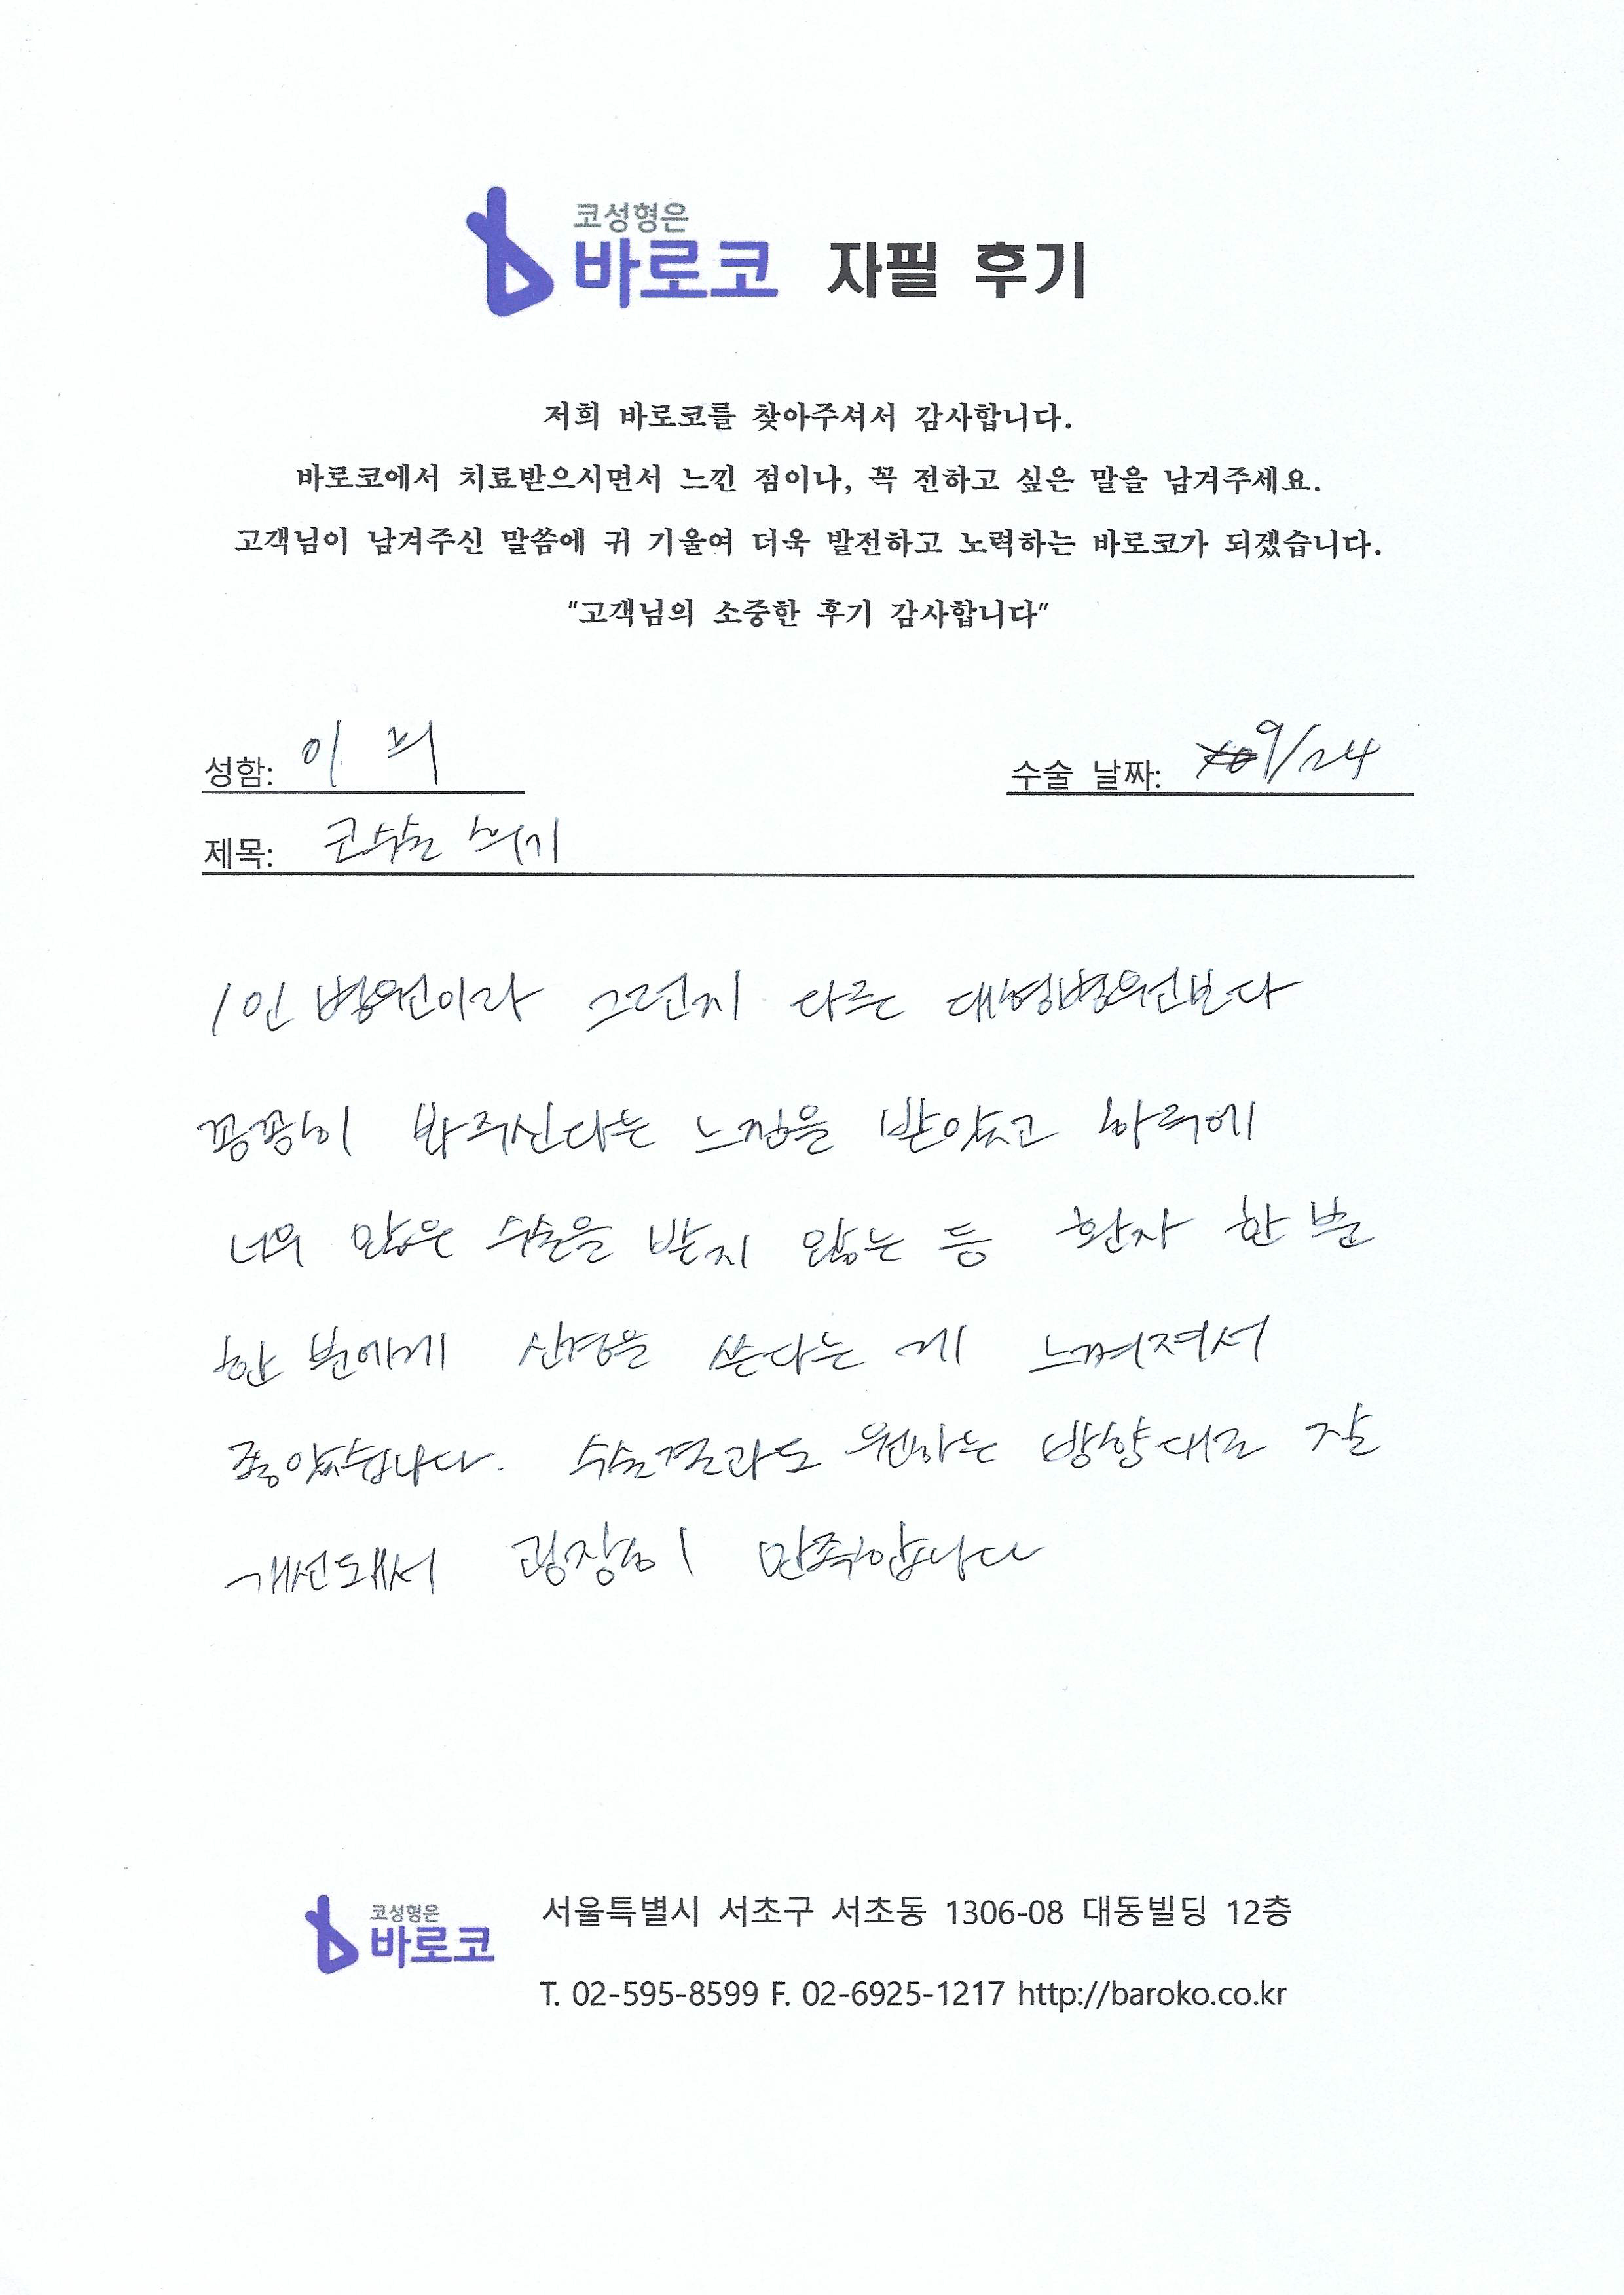 코성형은
바로코 자필 후기
저희 바로코를 찾아주셔서 감사합니다.
바로코에서 치료받으시면서 느낀 점이나, 꼭 전하고 싶은 말을 남겨주세요.
고객님이 남겨주신 말씀에 귀 기울여 더욱 발전하고 노력하는 바로코가 되겠습니다.
"고객님의 소중한 후기 감사합니다"
성함: 이 수술 날짜: 9/24
제목: 코수술 후기
1인 병원이라 그런지 다른 대형병원보다
꼼꼼히 봐주신다는 느낌을 받았고 하루에
너무 많은 수술을 받지 않는 등 환자 한 분
한 분에게 신경을 쓴다는 게 느껴져서
좋았습니다. 수술결과도 원하는 방향대로 잘
개선돼서 굉장히 만족합니다
코성형은
바로코
서울특별시 서초구 서초동 1306-08 대동빌딩 12층
T. 02-595-8599 F. 02-6925-1217 http://baroko.co.kr